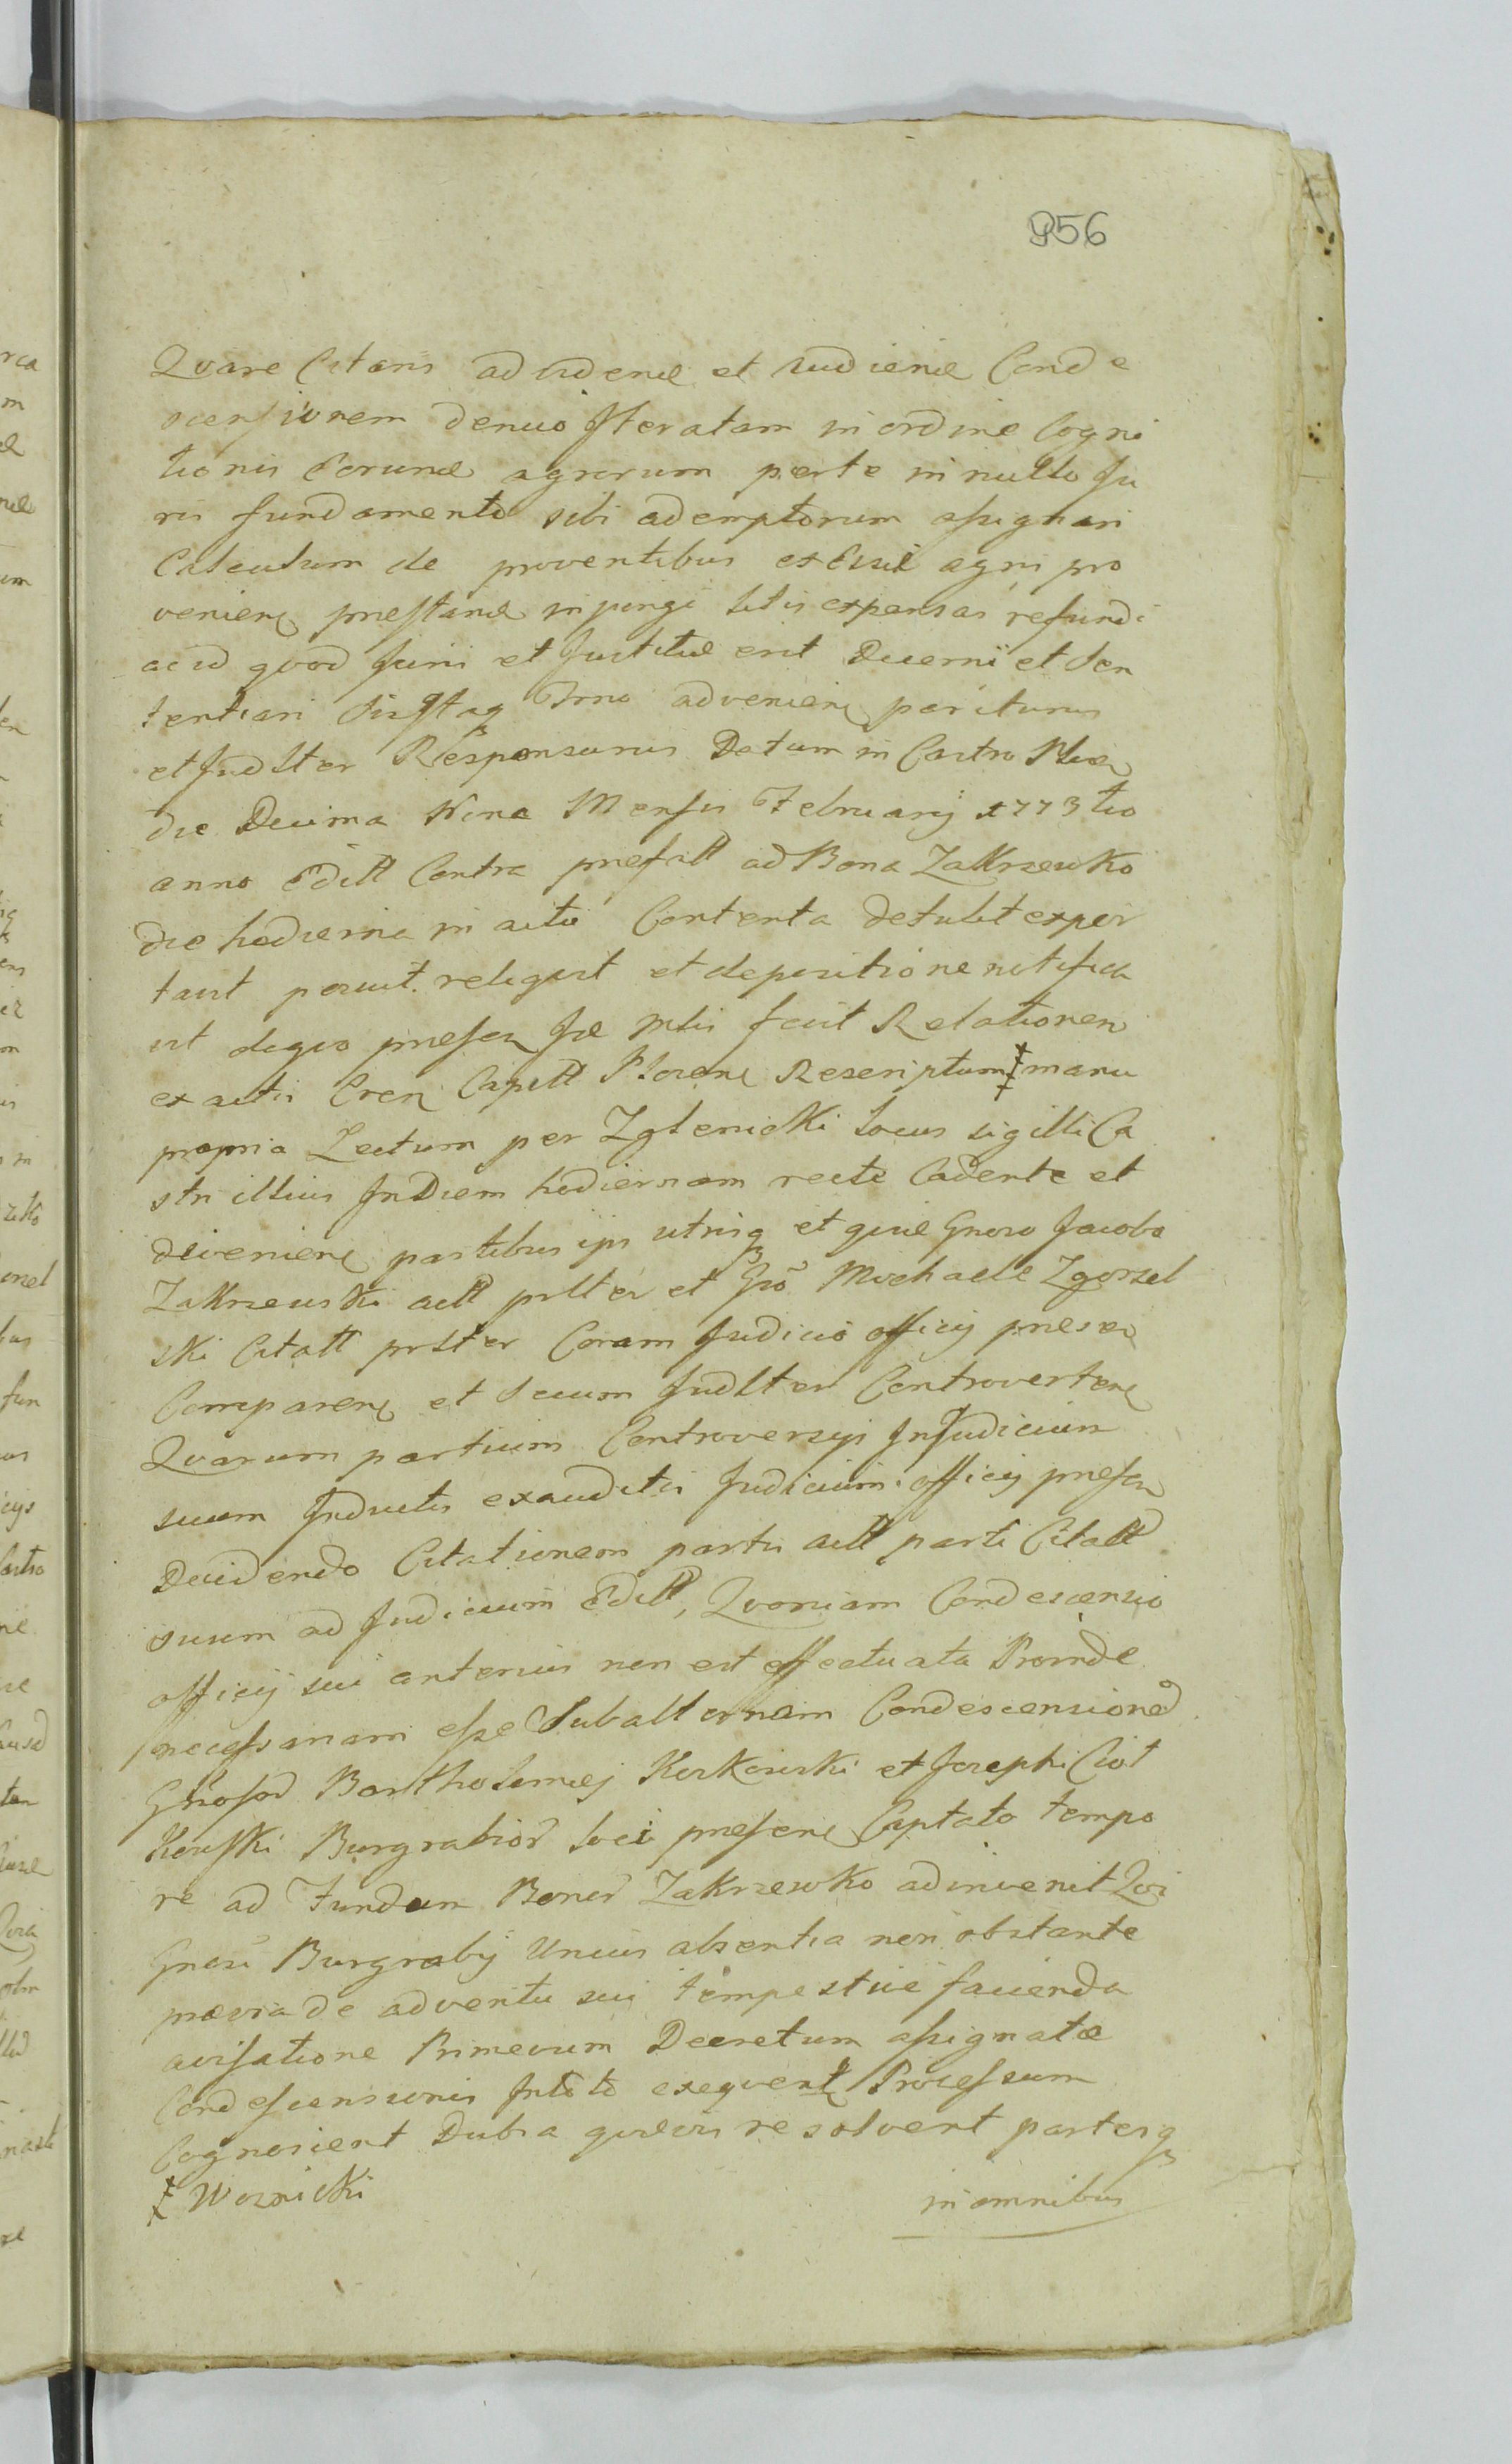 956
Qvare Citaris ad vidend et audiend Conde
scensionem denuo Iteratam in ordine Cogni
tionis Eorund agrorum parte in nullo Ju
ris fundamento sibi ademptorum assignari
Calculum de proventibus ex Eisd agris pro
venien prestand injungi litis expensas refundi
ac id qvod Juris et Justitiae erit Decerni et Sen
tentiari Sisstaq Trno advenien pariturus
et Judlter Responsurus Datum in Castro Ploc
die Decima Nona Mensis February 1773 tio
anno Editt Contra prefatt ad Bona Zakrzewko
die hodierna in actu Contenta detulit expor
tavit posuit religvit et depositione notifica
vit deqvo presen Jle Mtis fecit Relationem
ex actis Cren Capitt Plocen Rescriptum manu
propria Lectum per Zglenicki locus sigilli Ca
stri illius In Diem hodiernam recte Cadente et
devenien partibus ijs utrisq et qvie Gnoso Jacobo
Zakrzewski actt prlter et Gso Michaele Zgorzel
ski Citatt prlter Coram Judicio officij presen
Comparen et Secum Judlter Controverten
Qvarum partium Controversijs In Judicium
suum Inductis exauditis Judicium officij presen
Decidendo Citationem partis actt parti Citatt
suum ad Judicium Editt, Qvoniam Condescensio
officij sui anterius non est effectuata Proinde
necessariam esse Subalternam Condescensioned
Gnosod Bartholomej Karkowski et Josephi Ciot
kowski Burgrabiod loci presen Captato tempo
re ad Fundum Bonod Zakrzewko adinvenit Qvi
Gnosi Burgraby Unius absentia non obstante
praevia de adventu sui tempestive facienda
avisatione Primevum Decretum assignatae
Condescensionis Intoto exeqvent Processum
Cognoscent Dubia qvaevis resolvent partesq
Woznicki
in omnibus